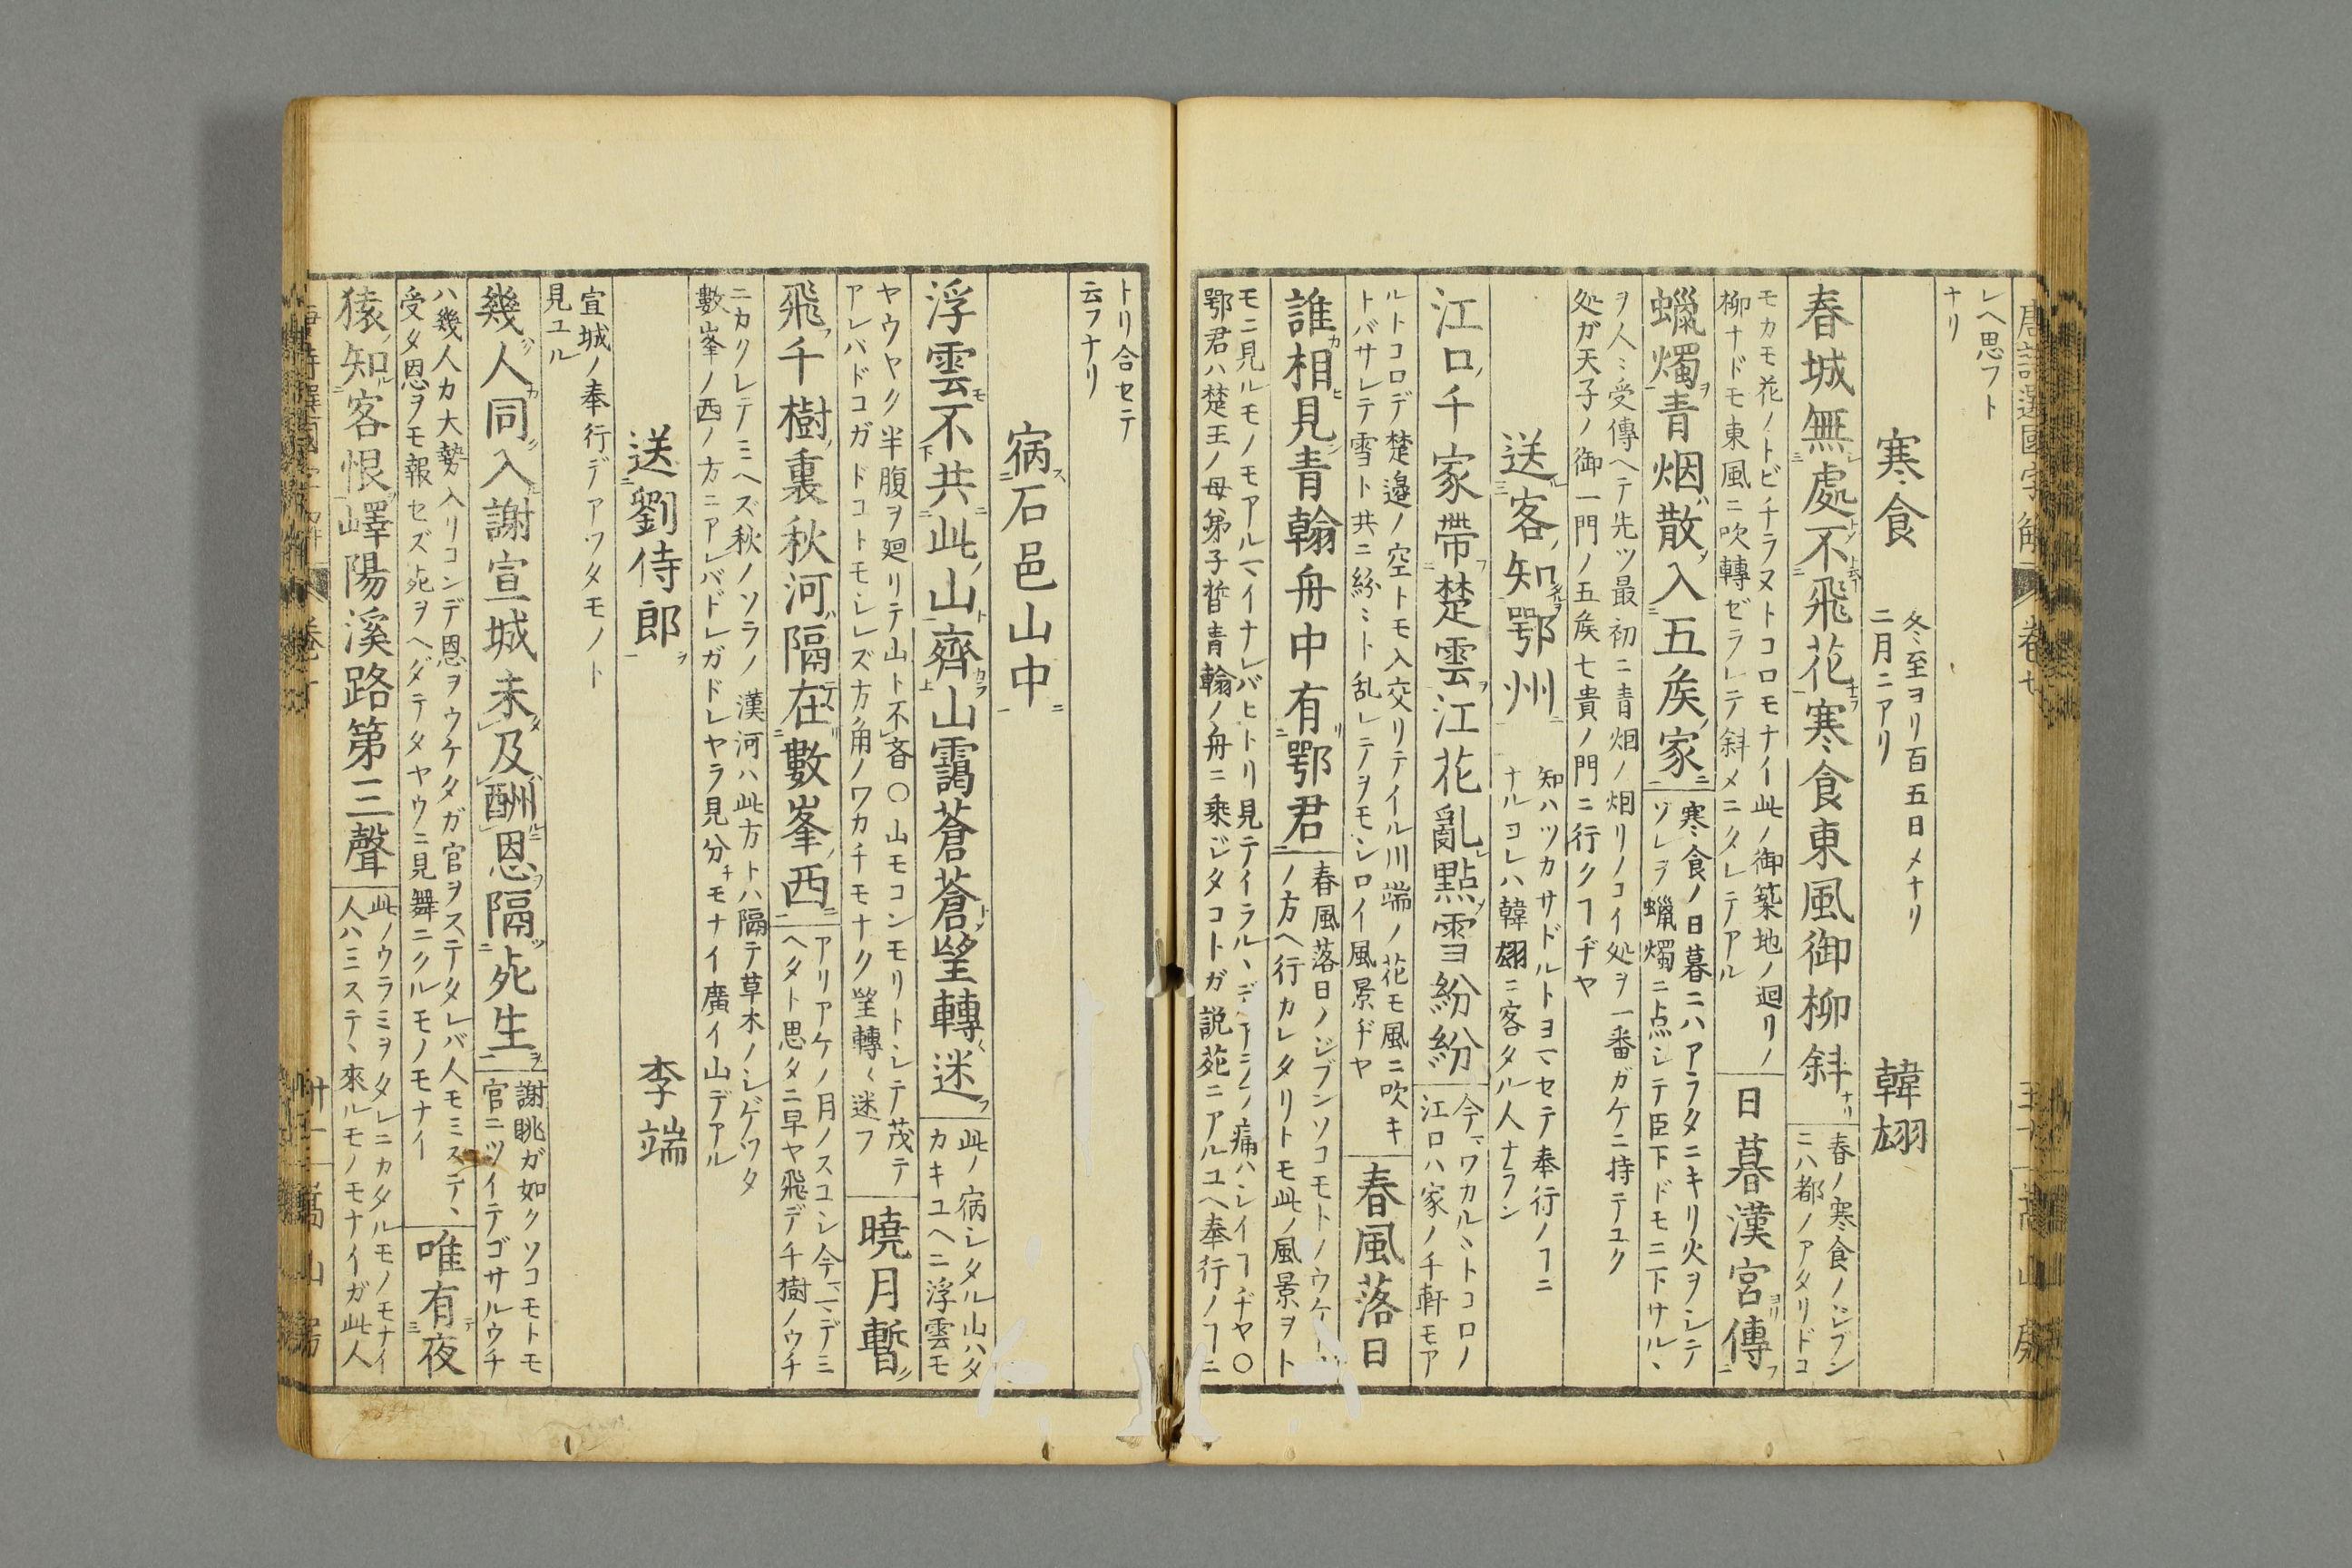 唐詩選國字解
卷七
嵩山房
レヘ思フト
ナリ
寒食
冬至ヨリ百五日メナリ
二月ニアリ
韓翃
春城無處不飛花寒食東風御柳斜
春ノ寒食ノジブン
ニハ都ノアタリドコ
モカモ花ノトビチラヌトコロモナイ此ノ御築地ノ廻リノ
柳ナドモ東風ニ吹轉ゼラレテ斜メニクレテアル
日暮漢宮傳
蠟燭青烟散入五矦家
寒食ノ日暮ニハアラタニキリ火ヲシテ
ソレヲ蠟燭ニ点シテ臣下ドモニ下サルヽ
ヲ人〻受傳ヘテ先ツ最初ニ青烟ノ烟リノコイ処ヲ一番ガケニ持テユク
処ガ天子ノ御一門ノ五矦七貴ノ門ニ行クヿヂヤ
送客知鄂州
知ハツカサドルトヨマセテ奉行ノヿニ
ナルコレハ韓翃ニ客タル人ナラン
江口千家帶楚雲江花亂點雪紛紛
今ワカルヽトコロノ
江口ハ家ノ千軒モア
ルトコロデ楚邉ノ空トモ入交リテイル川端ノ花モ風ニ吹キ
トバサレテ雪ト共ニ紛〻ト乱レテヲモシロイ風景ヂヤ
春風落日
誰相見青翰舟中有鄂君
春風落日ノジブンソコモトノウケ
ノ方ヘ行カレタリトモ此ノ風景ヲト
モニ見ルモノモアルマイナレバヒトリ見テイラルヽ
鄂君ハ楚王ノ母弟子晳青翰ノ舟ニ乗ジタコトガ説苑ニアルユヘ奉行ノヿニ
トリ合セテ
云フナリ
病石邑山中
浮雲不共此山齊山靄蒼蒼望轉迷
此ノ病シタル山ハタ
カキユヘニ浮雲モ
ヤウヤク半腹ヲ廻リテ山ト不斉〇山モコンモリトシテ茂テ
アレバドコガドコトモシレズ方角ノワカチモナク望轉〻迷フ
曉月暫
飛千樹裏秋河隔在數峯西
アリアケノ月ノスコシ今マデミ
ヘタト思タニ早ヤ飛デ千樹ノウチ
ニカクレテミヘズ秋ノソラノ漢河ハ此方トハ隔テ草木ノシゲツタ
數峯ノ西ノ方ニアレバドレガドレヤラ見分チモナイ廣イ山デアル
送劉侍郎
李端
宣城ノ奉行デアツタモノト
見ユル
幾人同入謝宣城未及酬恩隔死生
謝眺ガ如クソコモトモ
官ニツイテゴサルウチ
ハ幾人カ大勢入リコンデ恩ヲウケタガ官ヲステタレバ人モミステヽ
受タ恩ヲモ報セズ死ヲヘダテタヤウニ見舞ニクルモノモナイ
唯有夜
猿知客恨嶧陽溪路第三聲
此ノウラミヲタレニカタルモノモナイ
人ハミステヽ來ルモノモナイガ此人